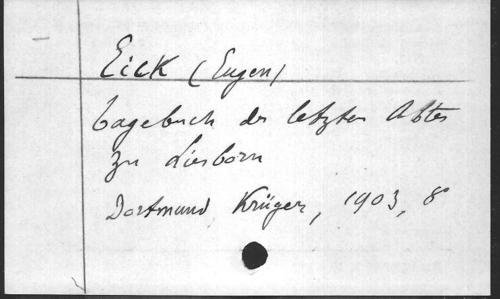 Eick (Eugen)
Tagebuch des letzten Abtes
zu Liesborn
Dortmund, Krüger, 1903, 8°